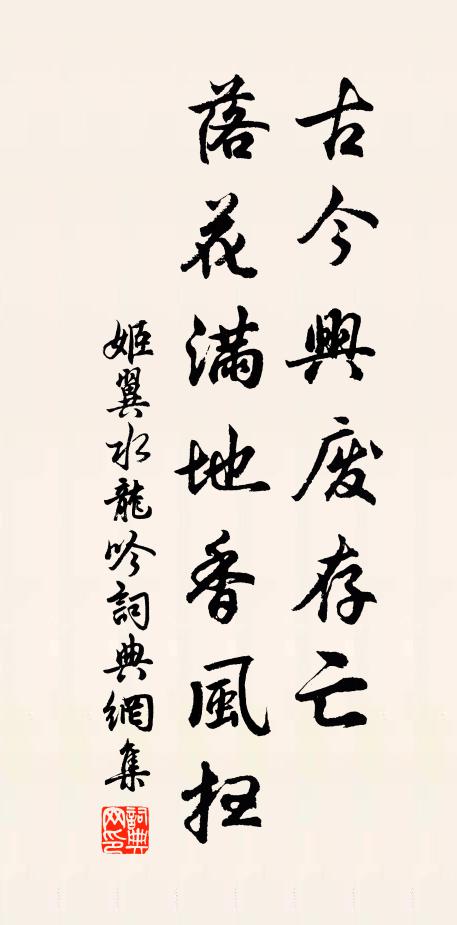 古今興废存亡
落花满地香風狂
姬翼水龍吟詞典網集
詞典网印